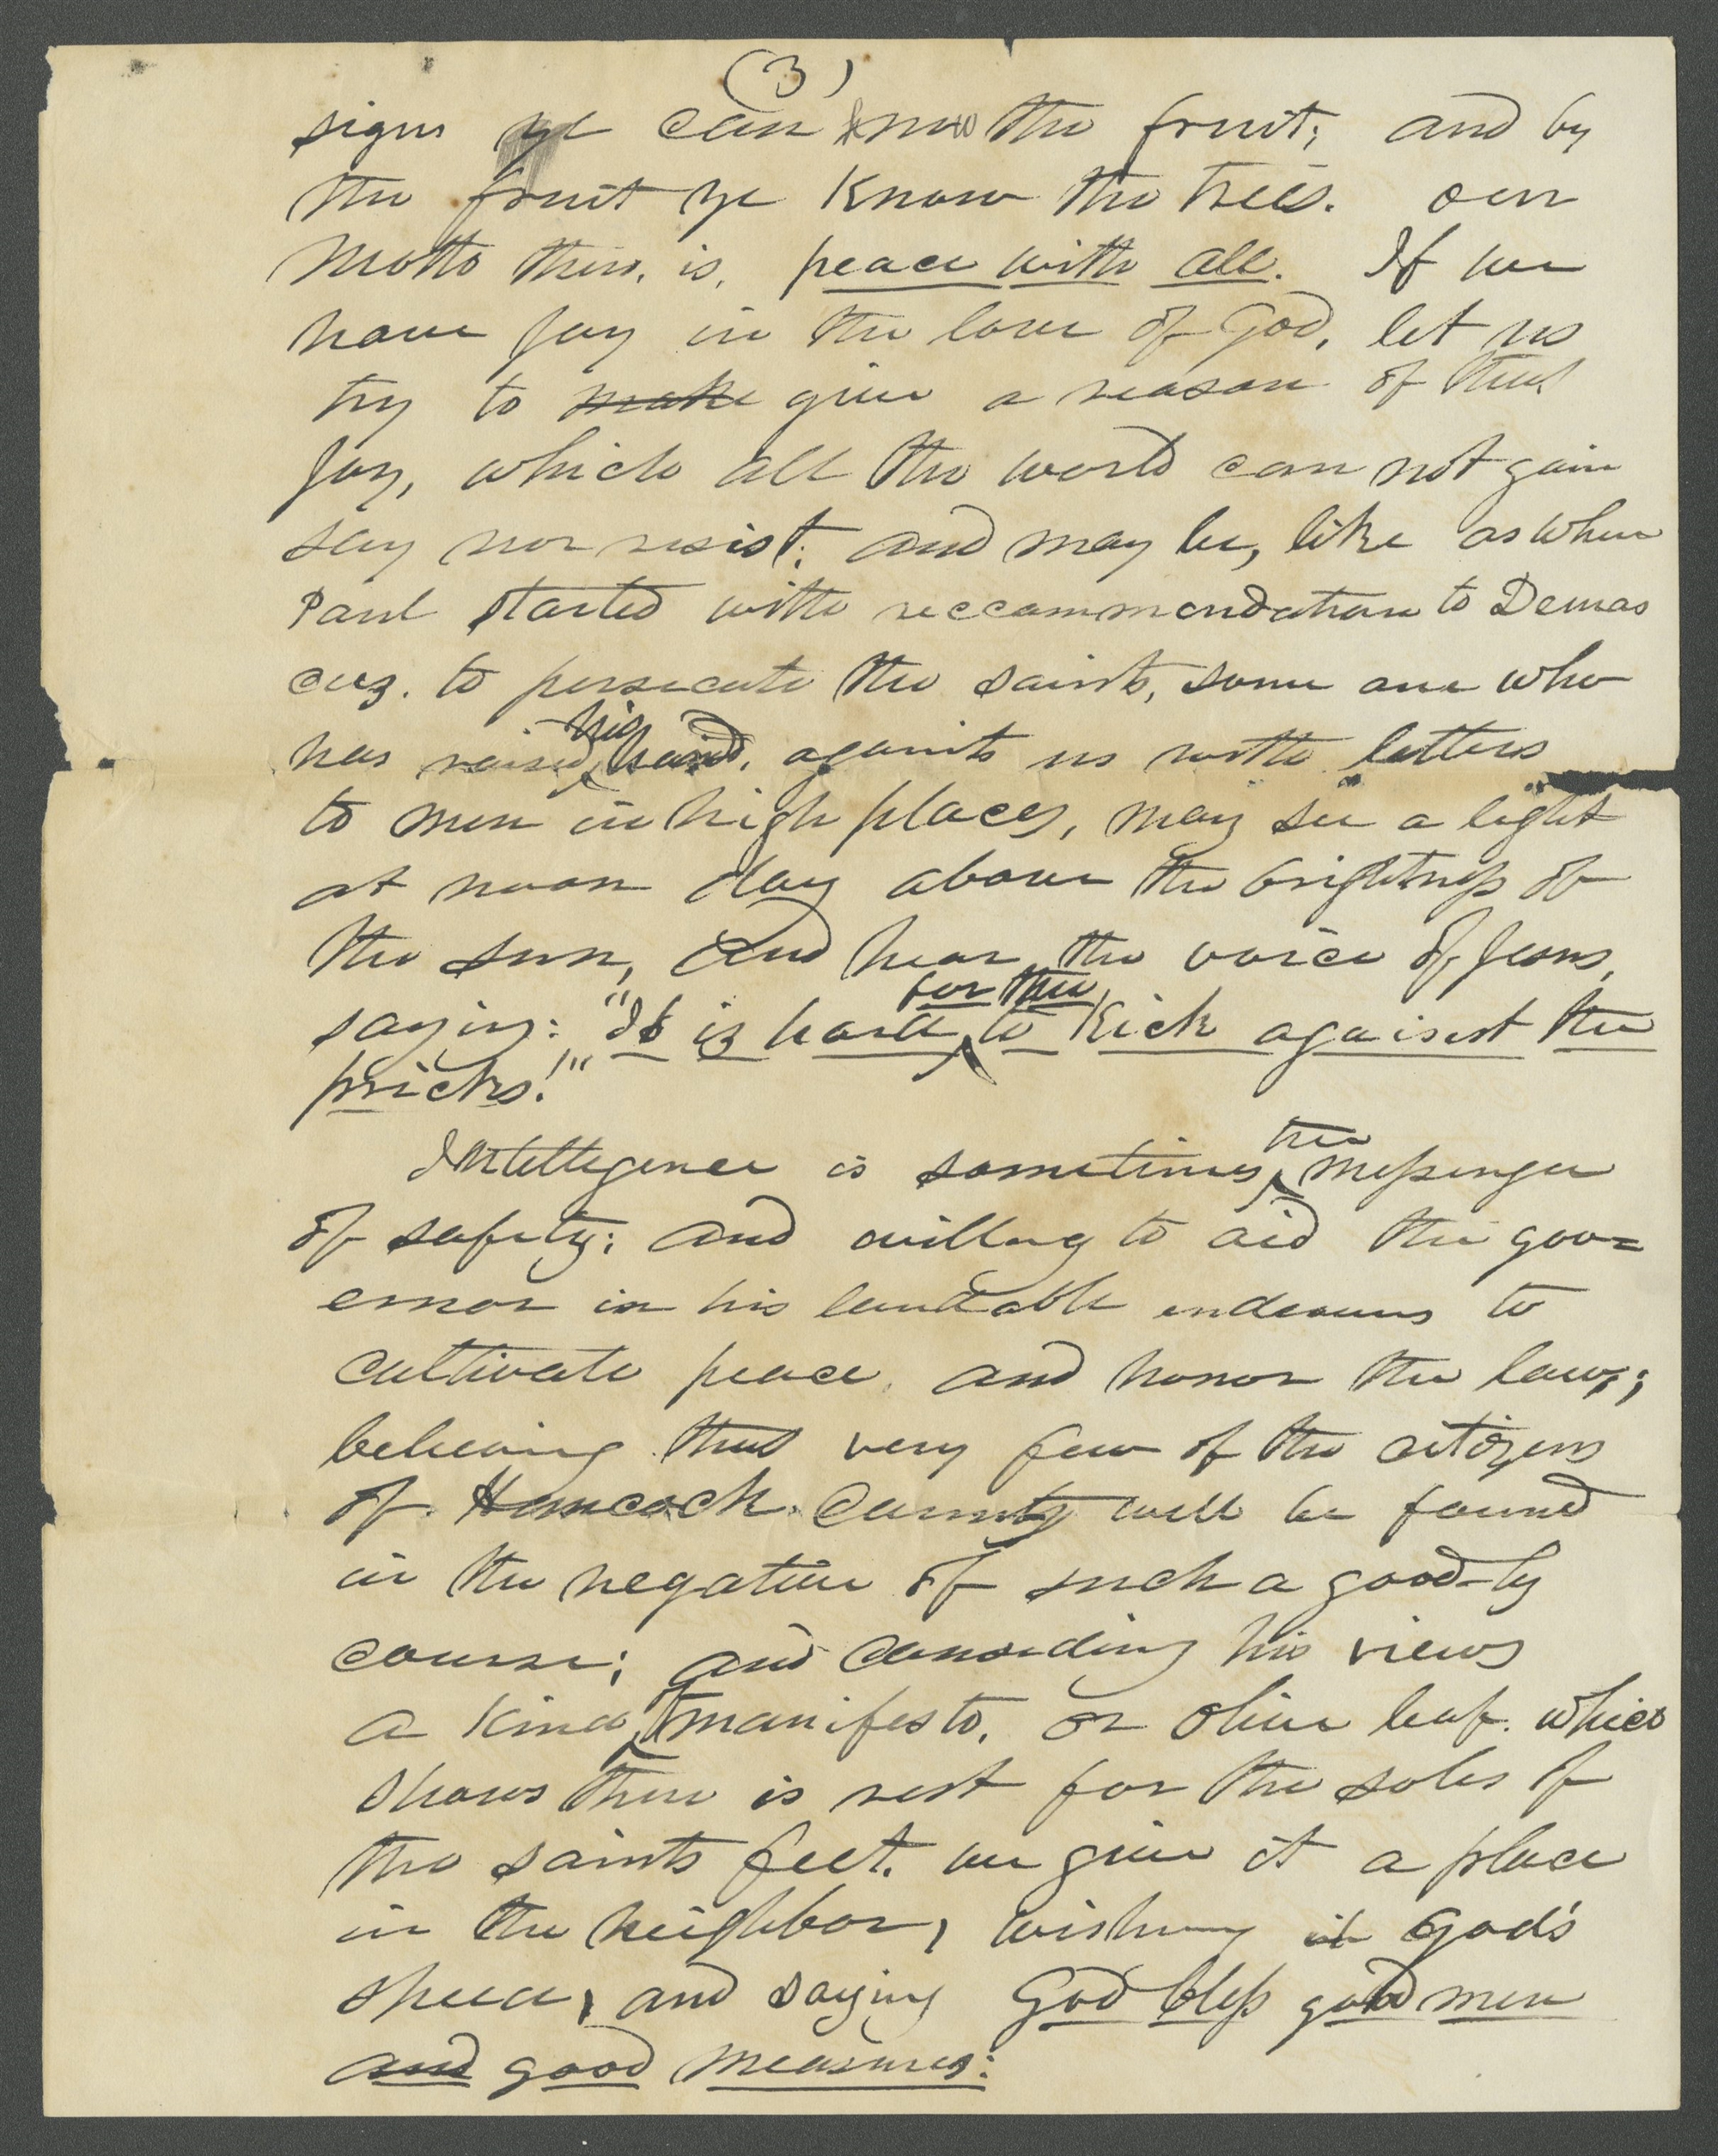 (3)
signs ye can know the fruit; and by
the fruit ye know the trees. our
motto then, is, peace with all. If we
have joy in the love of God, let us
try to make give a reason of that
joy, which all the world can not gain
say nor resist; and may be, like as when
Paul started with reccommendation to Demas
cus. to persecute the saints, some one who
has raised his hand, againts us with letters
to men in high places, may see a light
at noon day above the brightness of
the sun, and hear the voice of Jesus,
saying: "It is hard for thee to kick against the
pricks!"
Intellegence is sometimes the messenger
of safety; and willing to aid the gov=
ernor in his laudable endeavors to
cultivate peace and honor the laws;
believing that very few of the citizens
of Hancock County will be found
in the negative of such a goodly
course; and considing his views
a kind of manifesto, or olive leaf. which
shows there is rest for the soles of
the saints feet. we give it a place
in the neighbor, wishing it God's
speed, and saying God bless good men
and good measures: